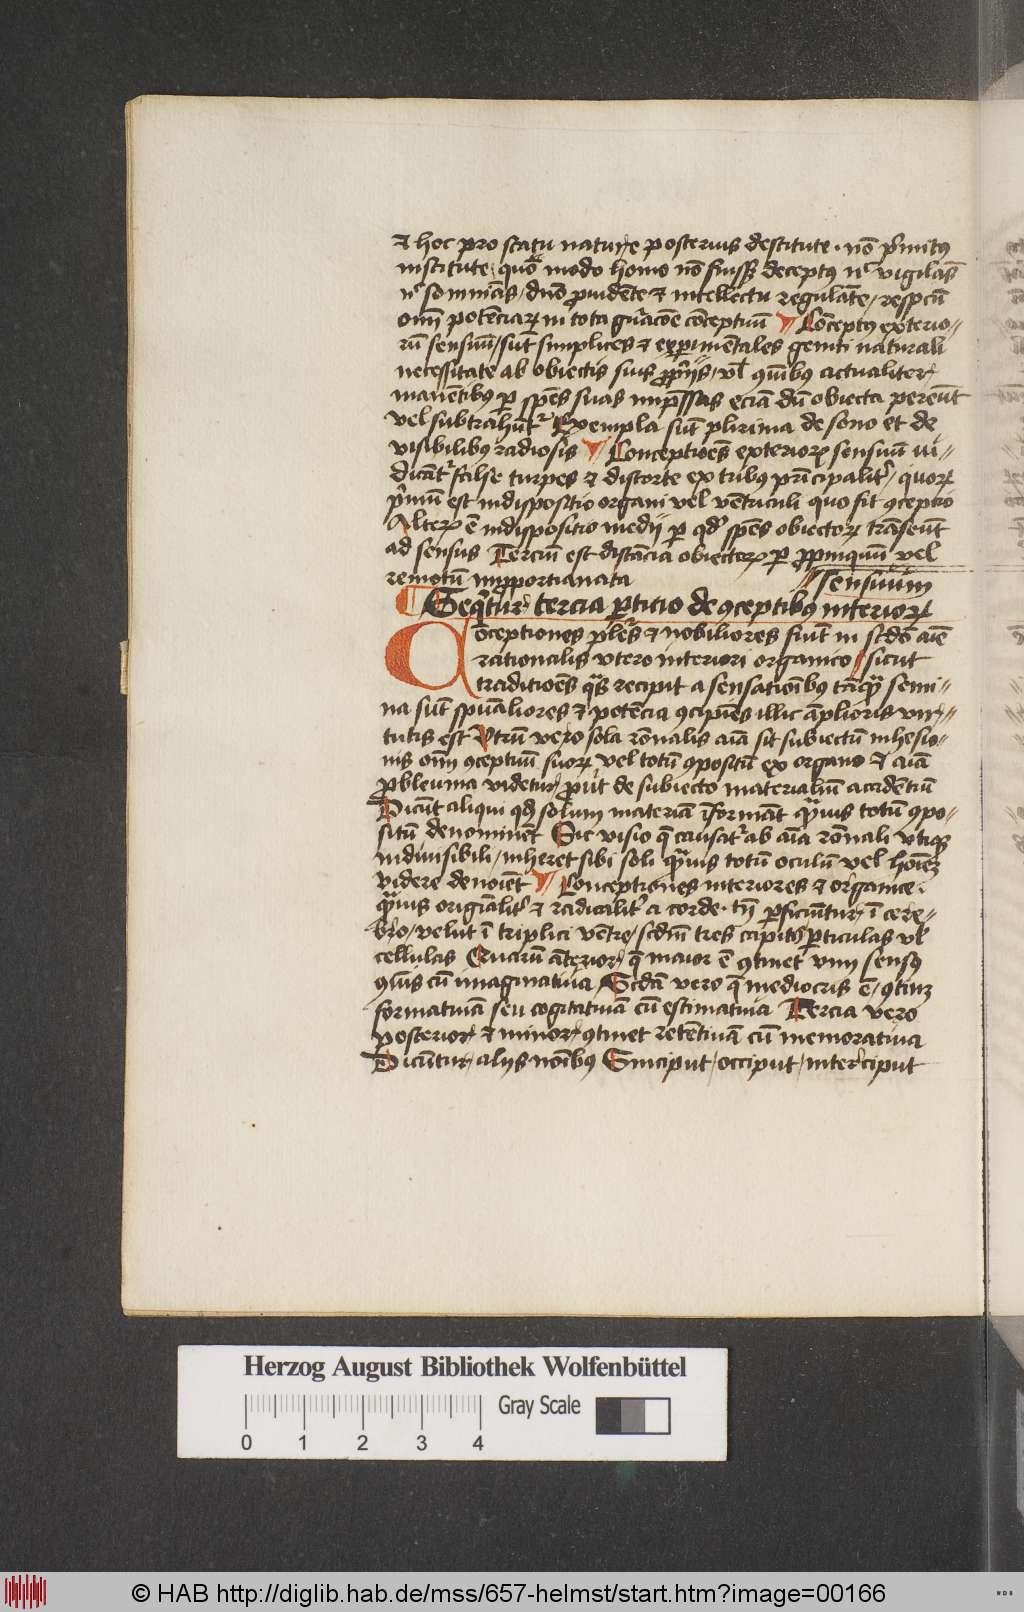 ⁊ hoc pro statu nature posterius destitute · nō p̄mitꝰ
institute, quō modo homo nō fuissꝫ deceptꝰ nͨ vigilās
nͨ somniās, dnō ꝓuidēte ⁊ intellectu regulāte, respcū
oīm potēciaꝝ in tota gn̄acōe cōceptiuū Cōceptꝰ exterio-
rū sensuū, sūt simplices ⁊ exꝑimētales geniti naturali
necessitate ab obiectis suis ꝓprijs, vl̄ qībus actualiter
manētibꝰ ꝑ spēs suas imp̄ssas eciā dū obiecta pereūt
vel subtrahūtͬ Exempla sūt plurima de sono et de
visibilibꝰ radiosis Conceptiōes exterioꝝ sensuū iu-
dicātͬ false turpes ⁊ distorte ex tribꝰ prīcipalitͬ, quoꝝ
p̄mū est indispositio organi vel vētriculi quo fit ꝯceptio
Alteꝝ ē indispositio medij ꝑ qd̄ spēs obiectoꝝ trāseūt
ad sensus Terciū est distācia obiectoꝝ ꝑ ꝓpinquū vel
remotū imꝓportionata
sensuum
Seq̄tur tercia ꝑticio de ꝯceptibꝰ interioꝝ
Cōceptiones pl̄es ⁊ nobiliores fiūt in scd̄o aīe
racionalis vtero interiori organico sicut
traditiōes q̄s recipit a sensatiōibꝰ tāqͣ semi-
na sūt spūaliores ⁊ potēcia ꝯcipiēs illic āplioris vir-
tutis est Vtrū vero sola rōnalis aīa sit subiectū inhesio-
nis oīm ꝯceptuū suoꝝ vel totū ꝯpositū ex organo ⁊ aīa
ꝓbleuma videtur, ꝓut de subiecto materialiū accidētiū
Dicūt aliqui qd̄ solum materiā īformāt quāuis totū ꝯpo-
sitū denominēt Sic visio q̄ causatͬ ab aīa rōnali vtiqꝫ
indiuisibili, inheret sibi soli quāuis totū oculū vel hoīeꝫ
videre denoīet Conceptiones interiores ⁊ organice
quāuis origīalitͬ ⁊ radicalitͬ a corde · tn̄ ꝑficiūtur ī cere-
bro, velut ī triplici vētre, scdm̄ tres capitꝭ ꝑticulas vl̄
cellulas Quarū āterior, q̄ maior ē ꝯtinet vim sensꝰ
ꝯīs cū imaginatiua Scdā vero q̄ mediocris ē, ꝯtinꝫ
formatiuā seu cogitatiuā cū estimatiua Tercia vero
posterior, ⁊ minor, ꝯtinet retētiuā cū memoratiua
Dicūtur, alijs noībꝰ Sinciput, occiput, interciput
Herzog August Bibliothek Wolfenbüttel
Gray Scale
0 1 2 3 4
© HAB http://diglib.hab.de/mss/657-helmst/start.htm?image=00166